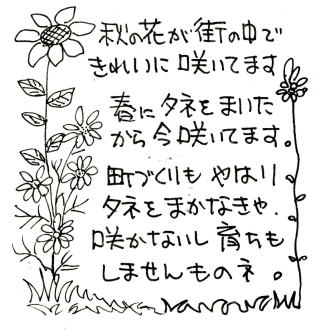 秋の花が街の中で
きれいに咲いてます
春にタネをまいた
から今咲いてます。
町づくりも やはり
タネをまかなきゃ、
咲かないし 育ちも
しませんものネ。